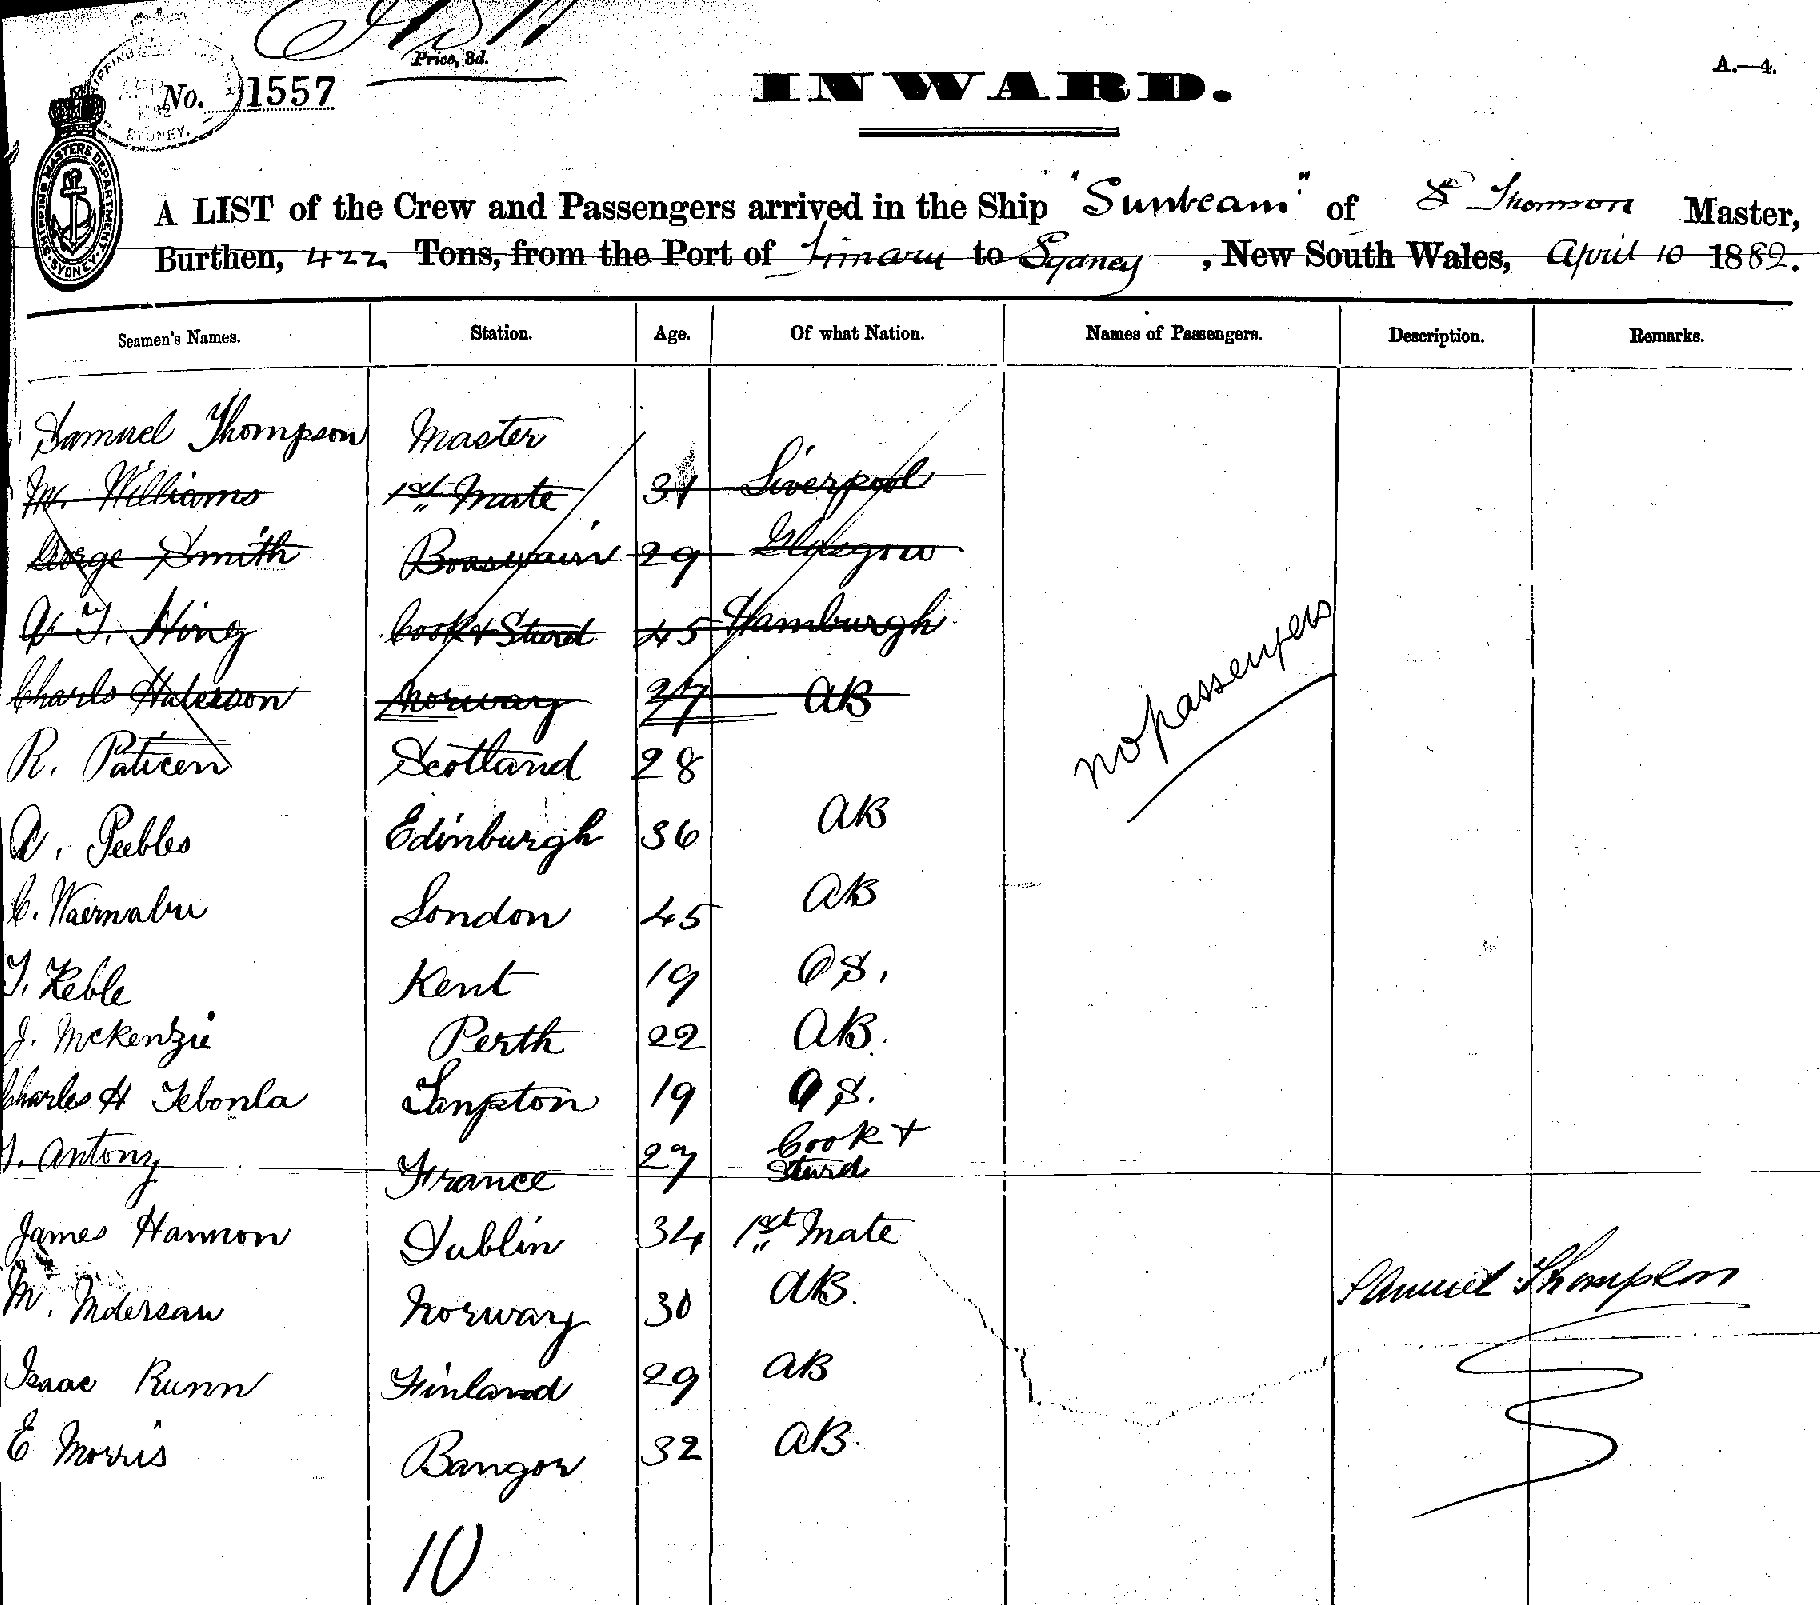 Price, 3d.
A.—4.
No. 1557
INWARD.
SHIPPING MASTERS DEPARTMENT SYDNEY
A LIST of the Crew and Passengers arrived in the Ship "Sunbeam" of S Thomson Master,
Burthen, 422 Tons, from the Port of Timaru to Sydney, New South Wales, April 10 1882.
Seamen's Names. Station. Age. Of what Nation. Names of Passengers. Description. Remarks.
Samuel Thompson Master
W. Williams 1st Mate 31 Liverpool
George Smith Boaswain 29 Glasgow
Hing Cook & Sturd 45 Hamburgh
Charls Norway 27 AB
R. Scotland 28
no passengers
A. Peebles Edinburgh 36 AB
C. London 45 AB
T. Keble Kent 19 OS.
J. McKenzie Perth 22 AB.
Charles H Tebonla 19 OS.
J. Antony France 27 Cook & Sturd
James Hannon Dublin 34 1st Mate
M. Norway 30 AB.
Samuel Thompson
Isaac Runn Finland 29 AB
E Morris Bangor 32 AB.
10